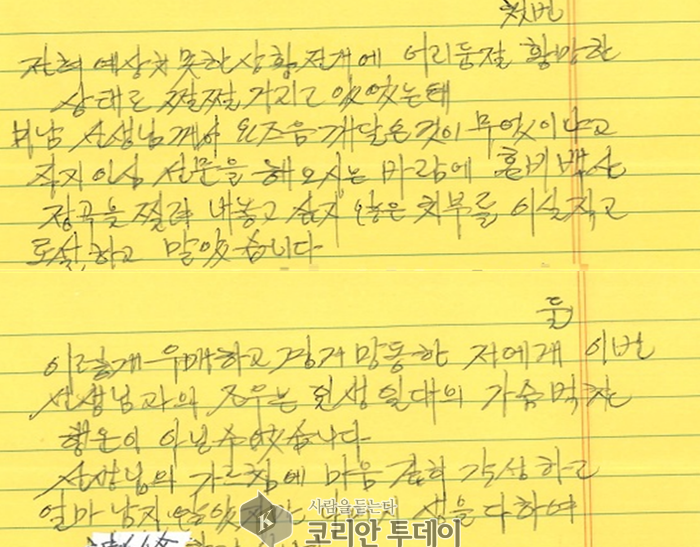 첫번
전혀 예상치 못한 상황 전개에 어리둥절 황망한
상태로 쩔쩔 거리고 있었는데
비남 선생님께서 요즈음 깨달은 것이 무엇이냐고
직지인심 선문을 해 오시는 바람에 혼비백산
정곡을 찔려 내놓고 싶지 않은 치부를 이실직고
토설하고 말았습니다
둘
이렇게 우매하고 경거망동한 저에게 이번
선생님과의 조우는 필생일대의 가슴 벅찬
행운이 아닐 수 없습니다
선생님의 가르침에 마음 깊히 각성하고
얼마 남지 않았지만 생을 다하여
사람을 듣는다
K 코리안 투데이